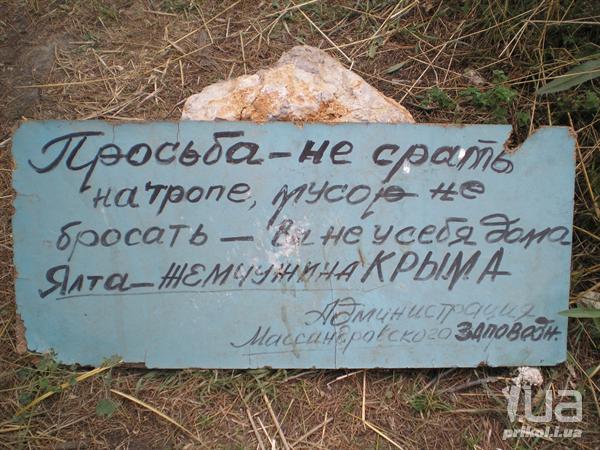 Просьба - не срать
на тропе, мусор не
бросать - Вы не у себя дома
Ялта - ЖЕМЧУЖИНА КРЫМА
Администрация
Массандровского ЗАПОВЕДН.
iua
prikol.i.ua